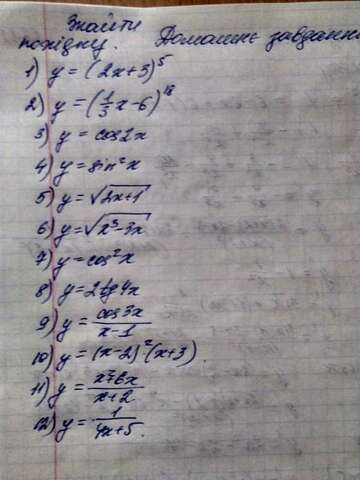 Знайти
похідну. Домашнє завдання
1) y = (2x+3)^5
2) y = (1/3 x - 6)^18
3) y = cos2x
4) y = sin²x
5) y = √(2x+1)
6) y = √(x³-3x)
7) y = cos²x
8) y = 2tg4x
9) y = cos3x / (x-1)
10) y = (x-2)²(x+3).
11) y = (x²+6x) / (x+2)
12) y = 1 / (4x+5).